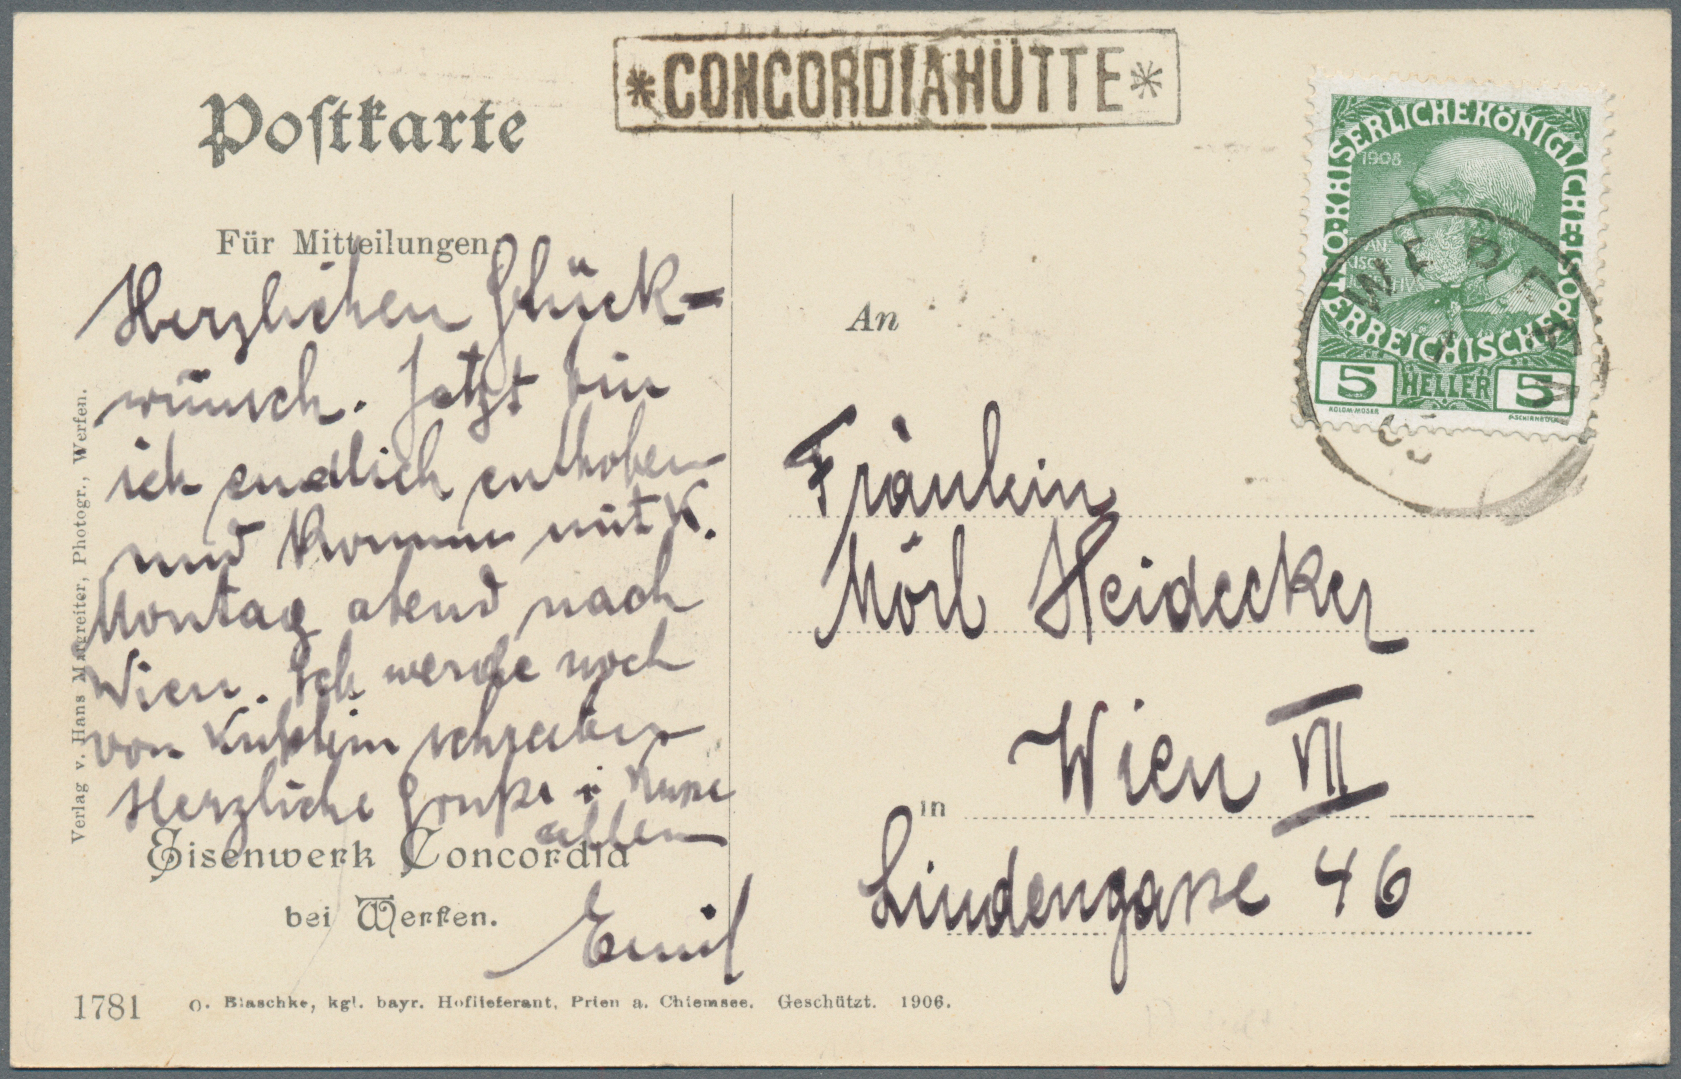 *CONCORDIAHÜTTE*
Postkarte
Für Mitteilungen
Herzlichen Glück-
wunsch. Jetzt bin
ich endlich enthoben
und komme mit K.
Montag abend nach
Wien. Ich werde noch
von schreiben
Herzliche Grüße
allen
Emil
Eisenwerk Concordia
bei Werfen.
Verlag v. Hans Margreiter, Photogr., Werfen.
1781 O. Blaschke, kgl. bayr. Hoflieferant, Prien a. Chiemsee. Geschützt. 1906.
An
Fräulein
Mörl Heidecker
in Wien VII
Lindengasse 46
KAISERLICHE KÖNIGLICHE ÖSTERREICHISCHE POST
1908
5 HELLER 5
KOLOM·MOSER